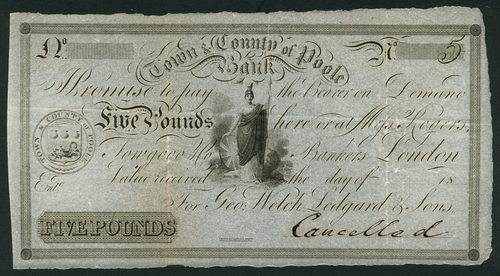 No
No 5
Town & County of Poole
Bank
I Promise to pay the Bearer on Demand
Five Pounds here or at Messrs Rogers,
Towgood & Co Bankers London
Value received the day of 18
Entd
For Geo. Welch Ledgard & Sons.
FIVE POUNDS
Cancelled
TOWN & COUNTY POOLE